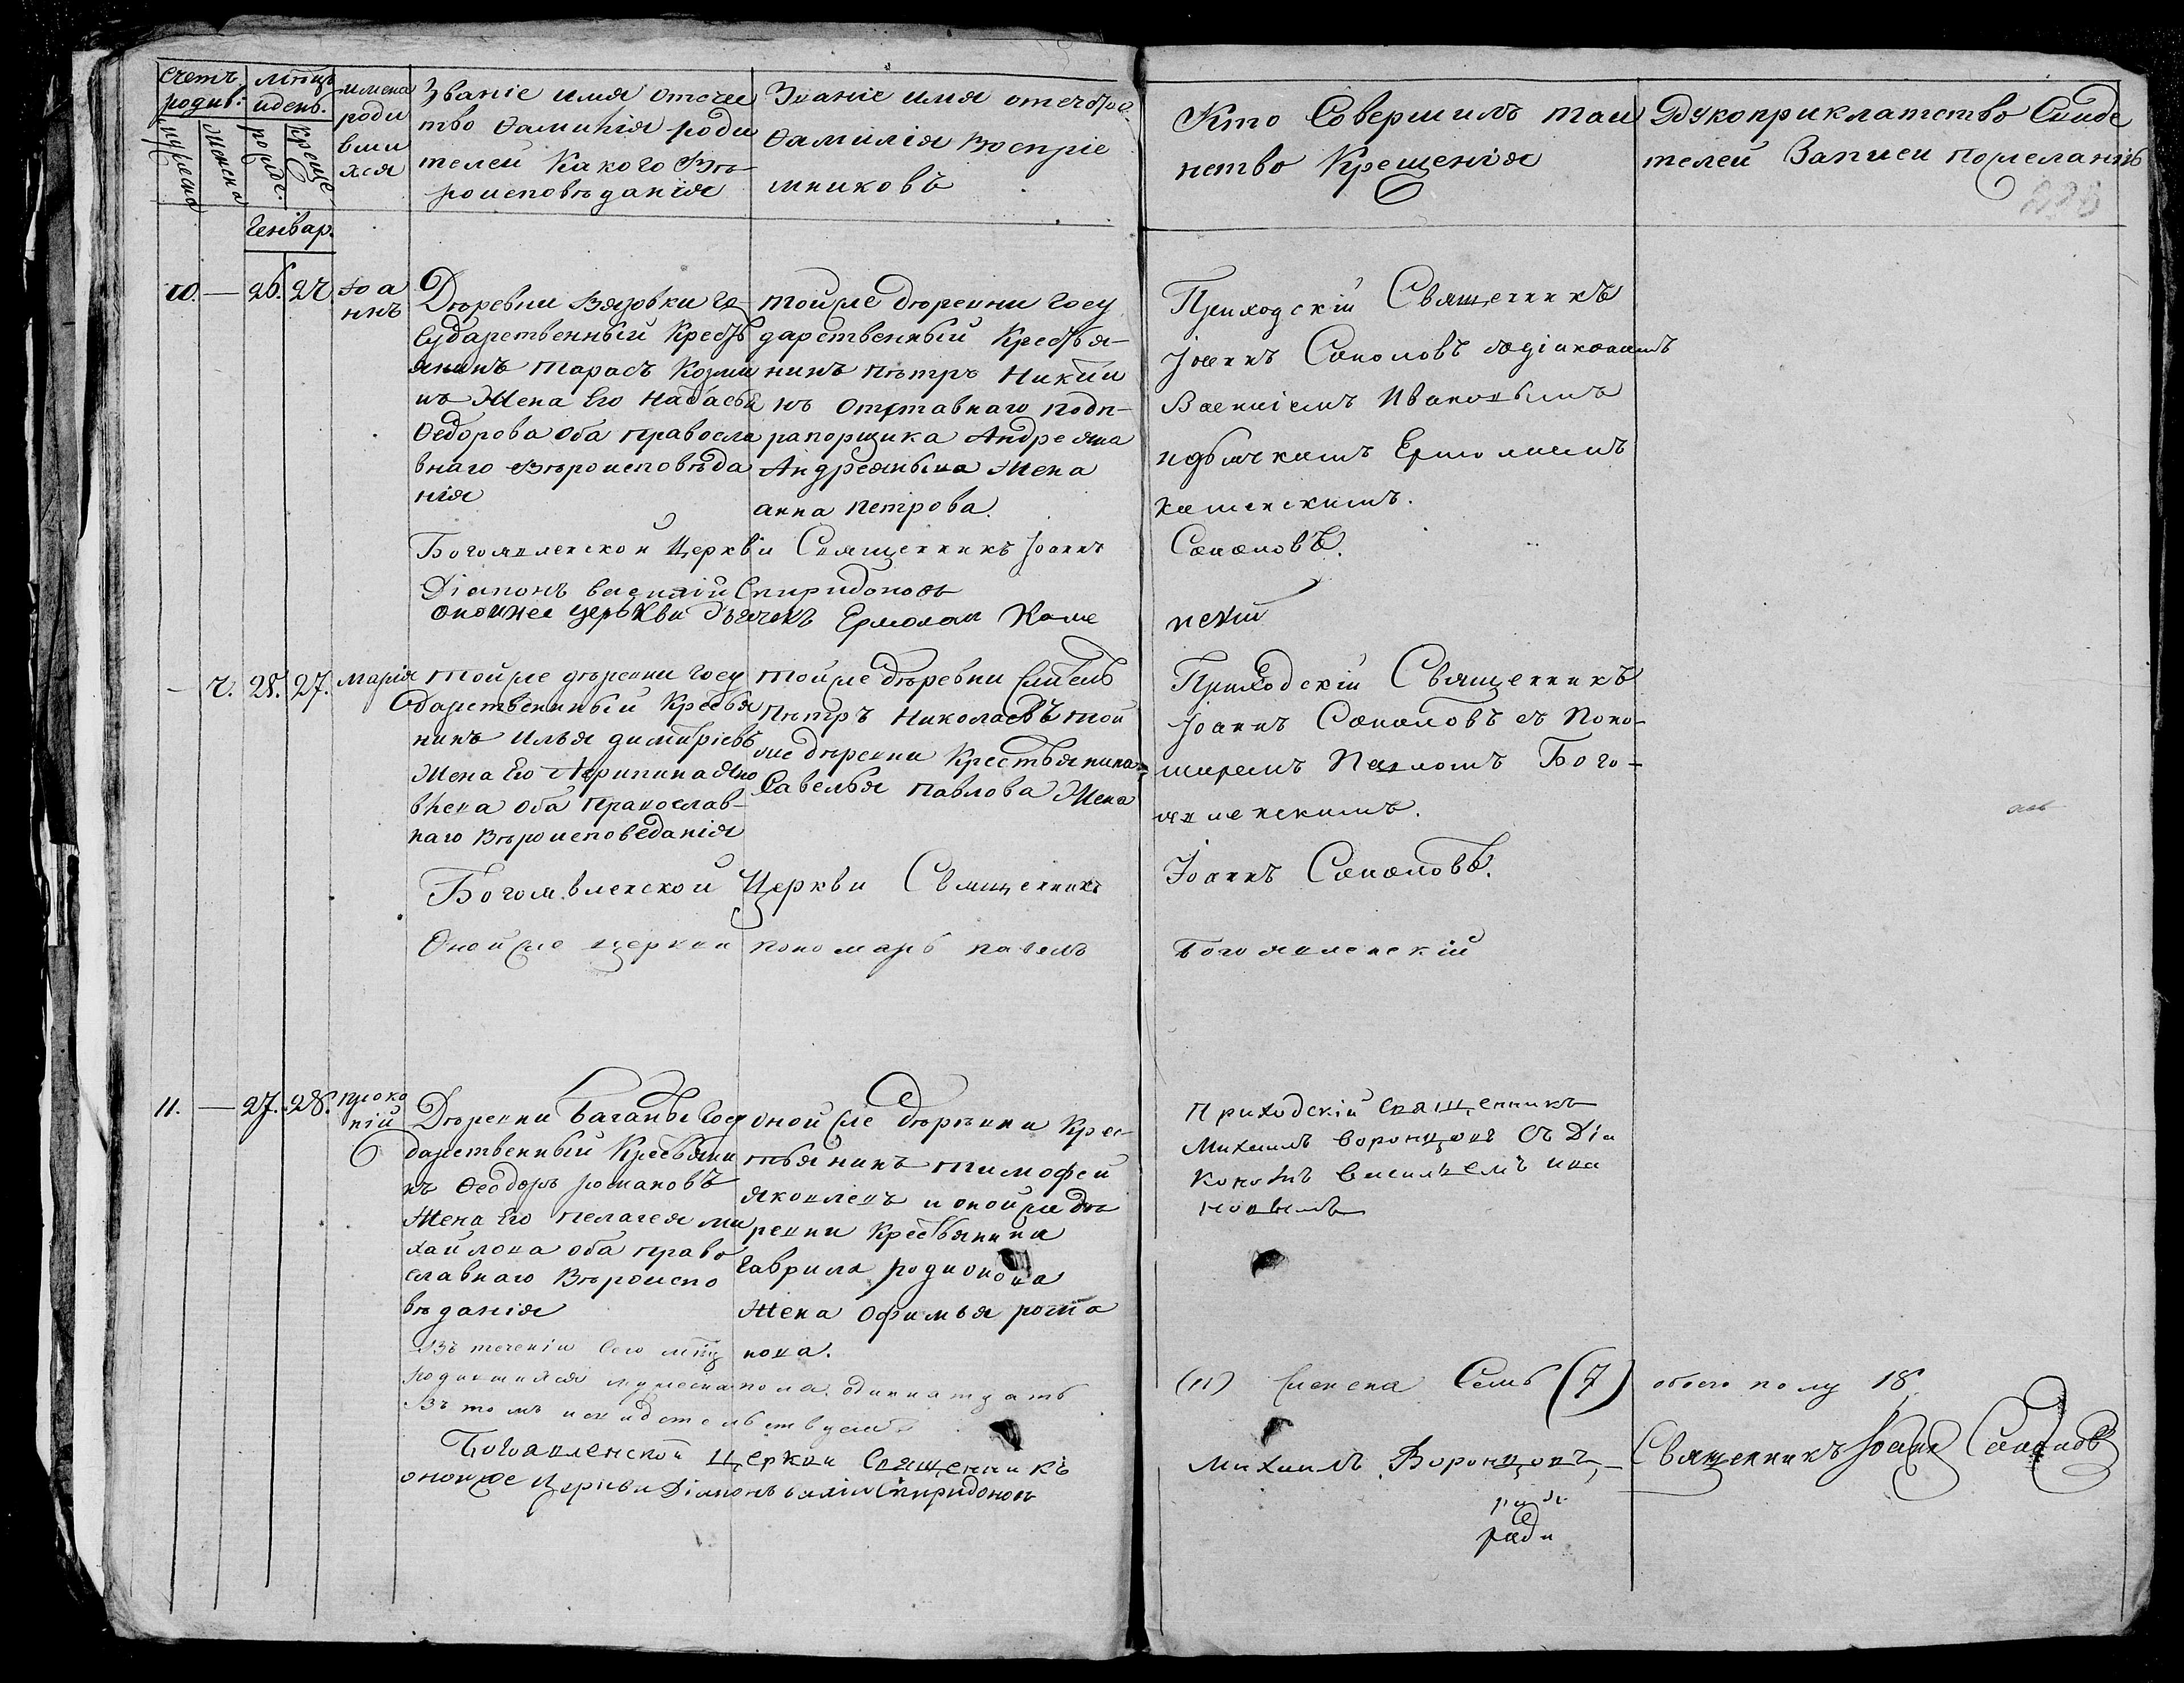 Счетъ родив:
мужеска
Женска
мѣцъ идень.
рожде.
Креще.
имена
роди
вши
хся
Званіе имя отече
тво Фамилія роди
телей Какого Вѣ
роисповѣданія
Званіе имя отечество
Фамилія Воспріе
мниковъ
Кто Совершилъ таи
нство Крещенія
Рукоприкладство Свиде
телей Записи пожеланію
Генвар.
10. — 26. 27. Іоа
ннъ
Дѣревни Вязовки го
Сударственный Кресть
янинъ Тарасъ Козми
нъ Жена Его Настасья
Федорова оба Правосла
внаго Вѣроисповѣда
нія
Тойже дѣревни Госу
дарственный Крестья-
нинъ Пѣтръ Никити
нъ Отставнаго подп-
рапорщика Андреяна
Андреянова Жена
анна Петрова.
Приходскій Священникъ
Іоаннъ Соколовъ
Василіемъ Ивановымъ
идьячкомъ Ермолаемъ
каменскимъ.
Богоявленской Церкви Священникъ Іоаннъ Соколовъ.
Діаконъ василій Спиридоновъ
онойже церькви дьячокъ Ермолаи Каме нскій
— 7. 25. 27. Марія
Тойже дѣревни Госу
дарственный Крестья
нинъ Илья Димитріевъ
Жена Его Агрипина Яко
влева оба Православ-
наго Вѣроисповеданія
Тойже дѣревни
Пѣтръ Николаевъ той
же дѣревни Крестьянина
Савелья Павлова Жена
Приходскій Священникъ
Іоаннъ Соколовъ съ Поно-
маремъ Павломъ Бого-
явленскимъ.
Богоявленской Церкви Священникъ Іоаннъ Соколовъ.
Онойже церкви пономарь павелъ Богоявленскій
11. — 27. 28. Проко
пій
Дѣревни Баганы Госу
дарственный Крестьяни
нъ Феодоръ Романовъ
Жена Его Пелагея Ми
хайлова оба Право
славнаго Вѣроиспо
вѣданія
Онойже дѣревни Крес-
тьянинъ Тимофей
Яковлевъ и онойже дѣ
ревни Крестьянина
Гаврила Родионова
Жена Офимья Рома
нова.
Приходскій Священникъ
Михаилъ Воронцовъ Съ Діа
кономъ Василіемъ Ива
новымъ
Въ теченіи Сего мѣц
Родившихся мужеска пола одиннатцать (11) Женска Семь (7) обоего полу 18
Въ томъ исвидетельствуемъ
Богоявленской Церкви Священникъ Михаилъ Воронцовъ, — Священникъ Іоаннъ Соколовъ
онойже Церькви Діаконъ василій Спиридоновъ